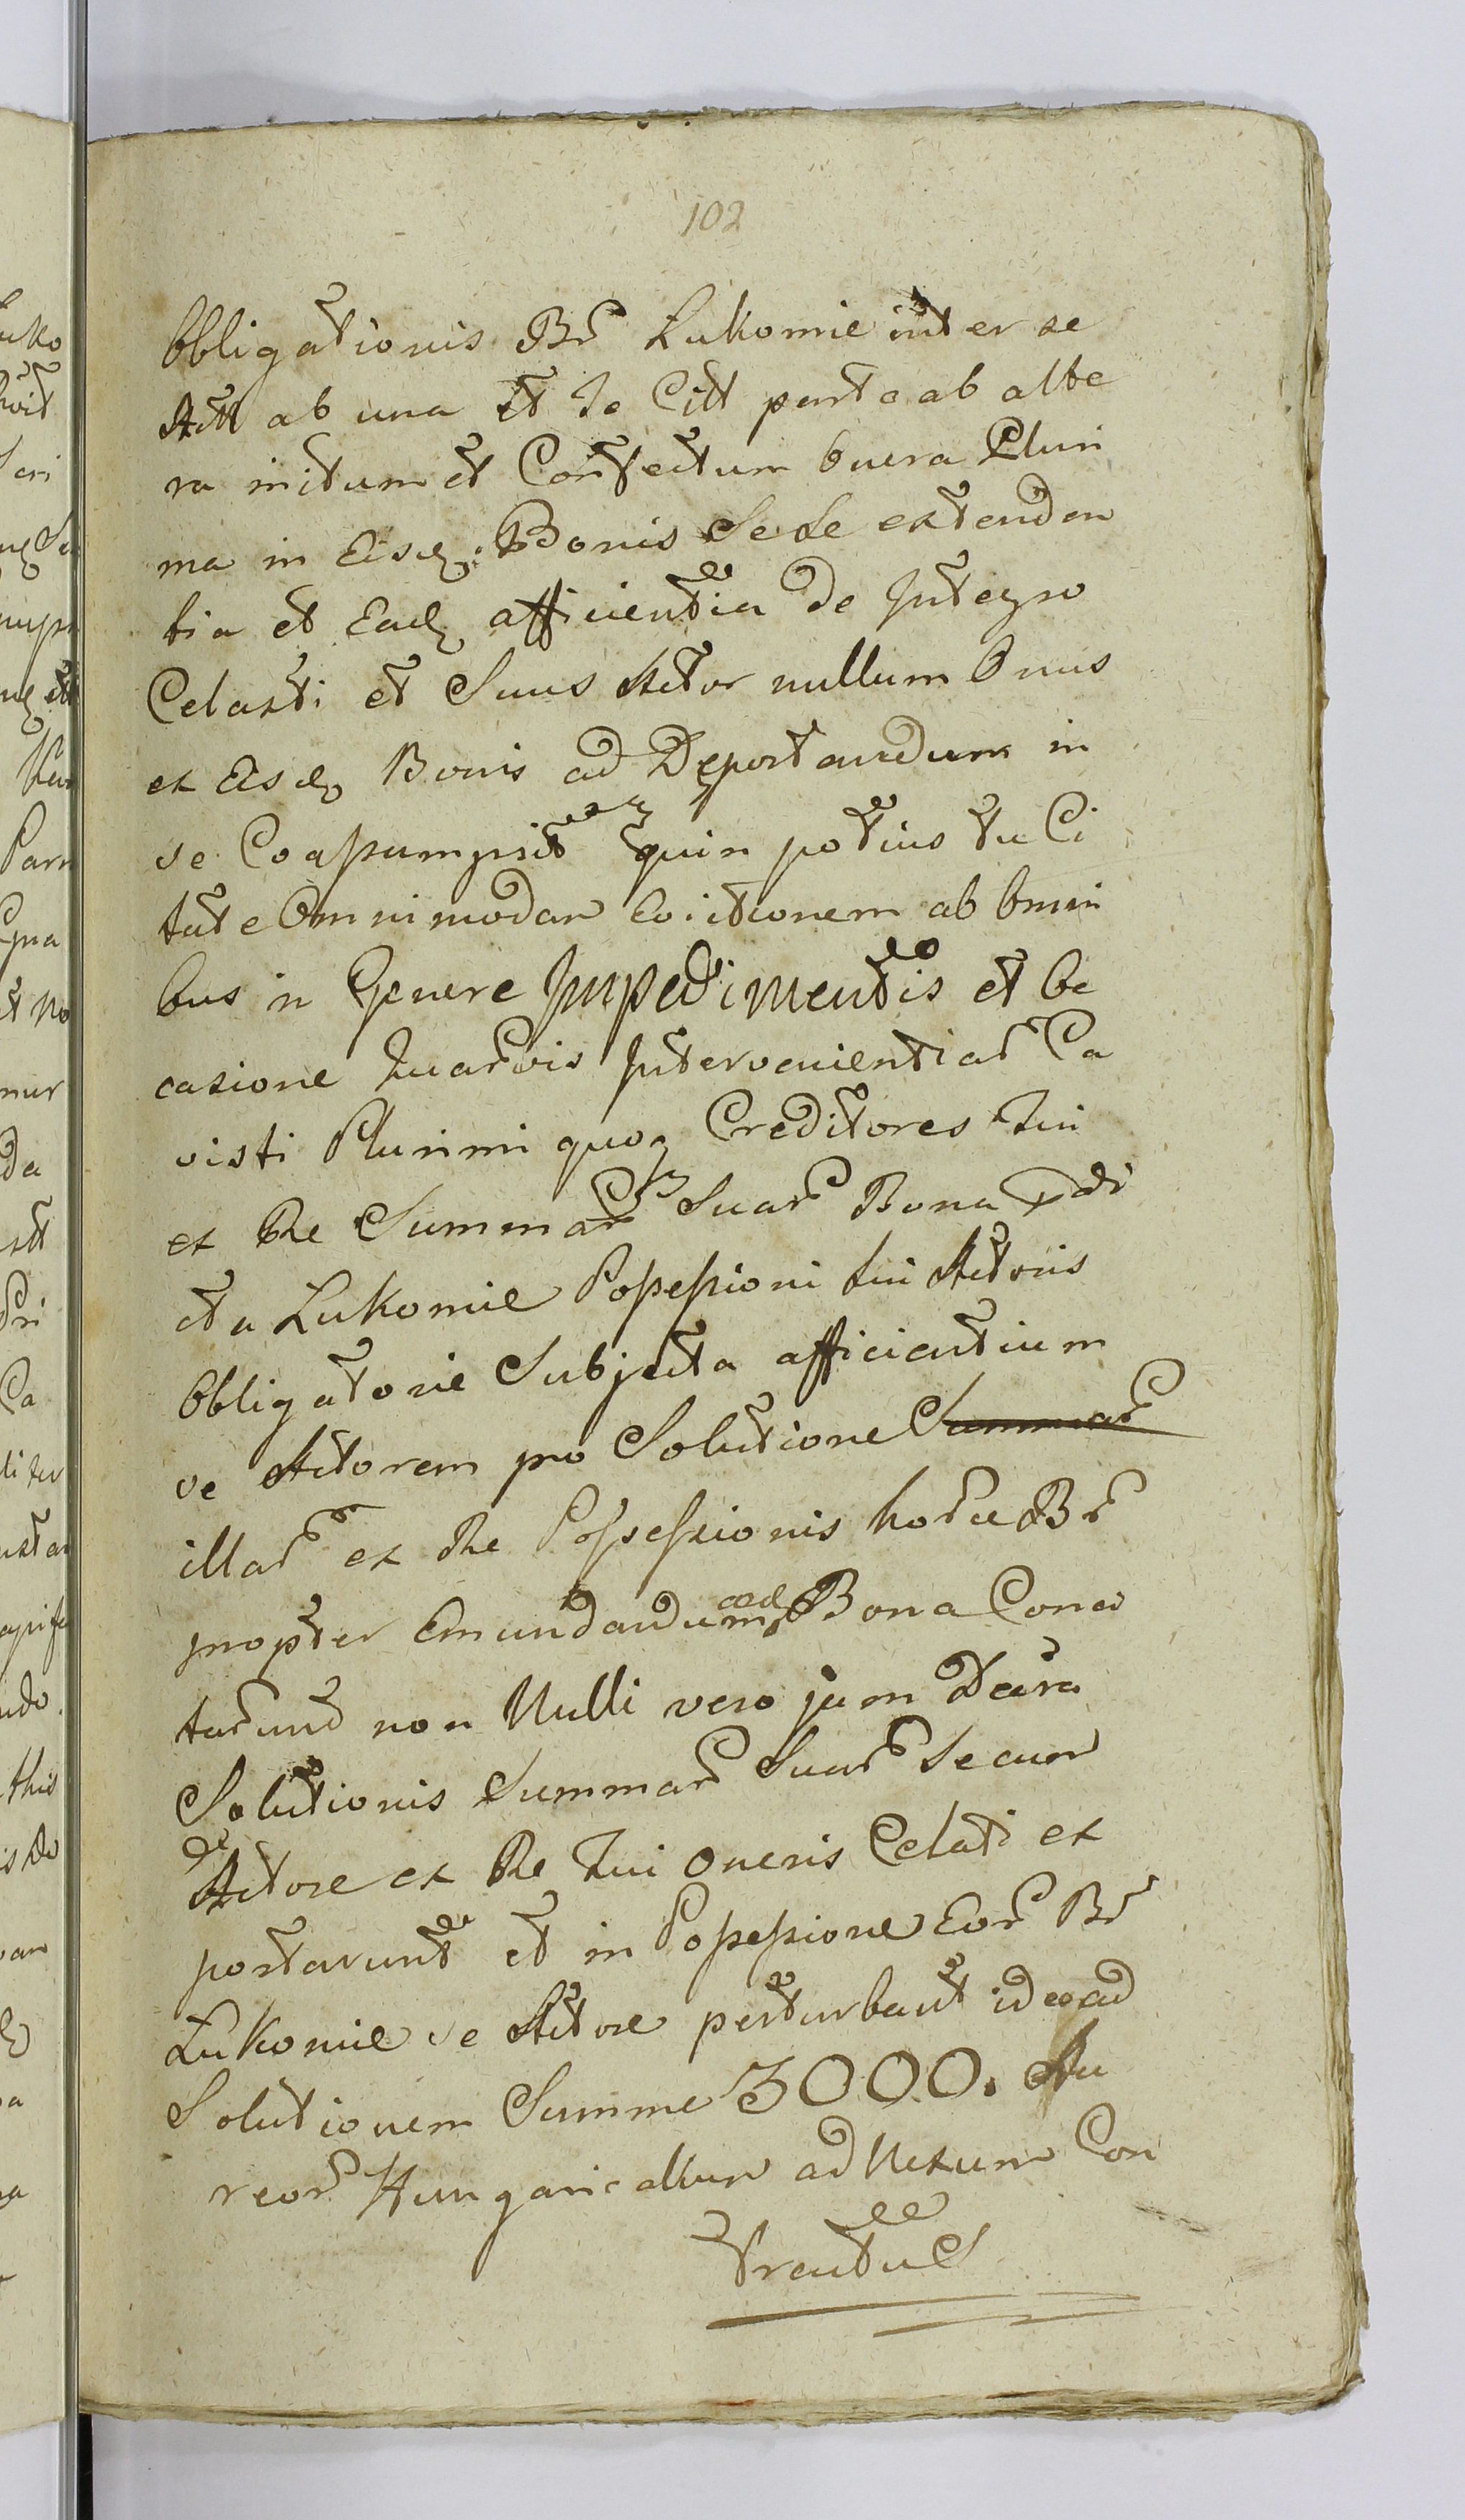 102
Obligationis Br Lukomie inter se
Actt ab una et Te Citt parte ab alte
ra initum et Contectum onera Pluri
ma in Eisd. Bonis Sese extenden
tia et Ead afficientia de Integro
Celasti et Suus Actor nullum Onus
ex Eisd Bonis ad Deportandum in
se Coassumpsit quin potius tu Ci
tate Omnimodan Evictionem ab Omni
bus in Genere Impedimentis et Oc
casione Quarvis Intervenientiar Ca
visti Plurimi quoq Creditores Tui
ex Re Summar Suar Bona
cta Lukomie Possessioni tui Actoris
Obligatorie Subjecta afficientium
se Actorem pro Solutione Summar
illar ex Re Possessionis horce Br
propter Emundandum ead Bona Conv
tarund non Nulli vero jam Decra
Solutionis Summar Suar Secum
Actore ex Re Tui Oneris Celati ex
portarunt et in Possessione Eor Br
Lukomie se Actore perturbant ideo ad
Solutionem Summe 3000. Au
reor Hungaricallium ad Nexum Con
tractus